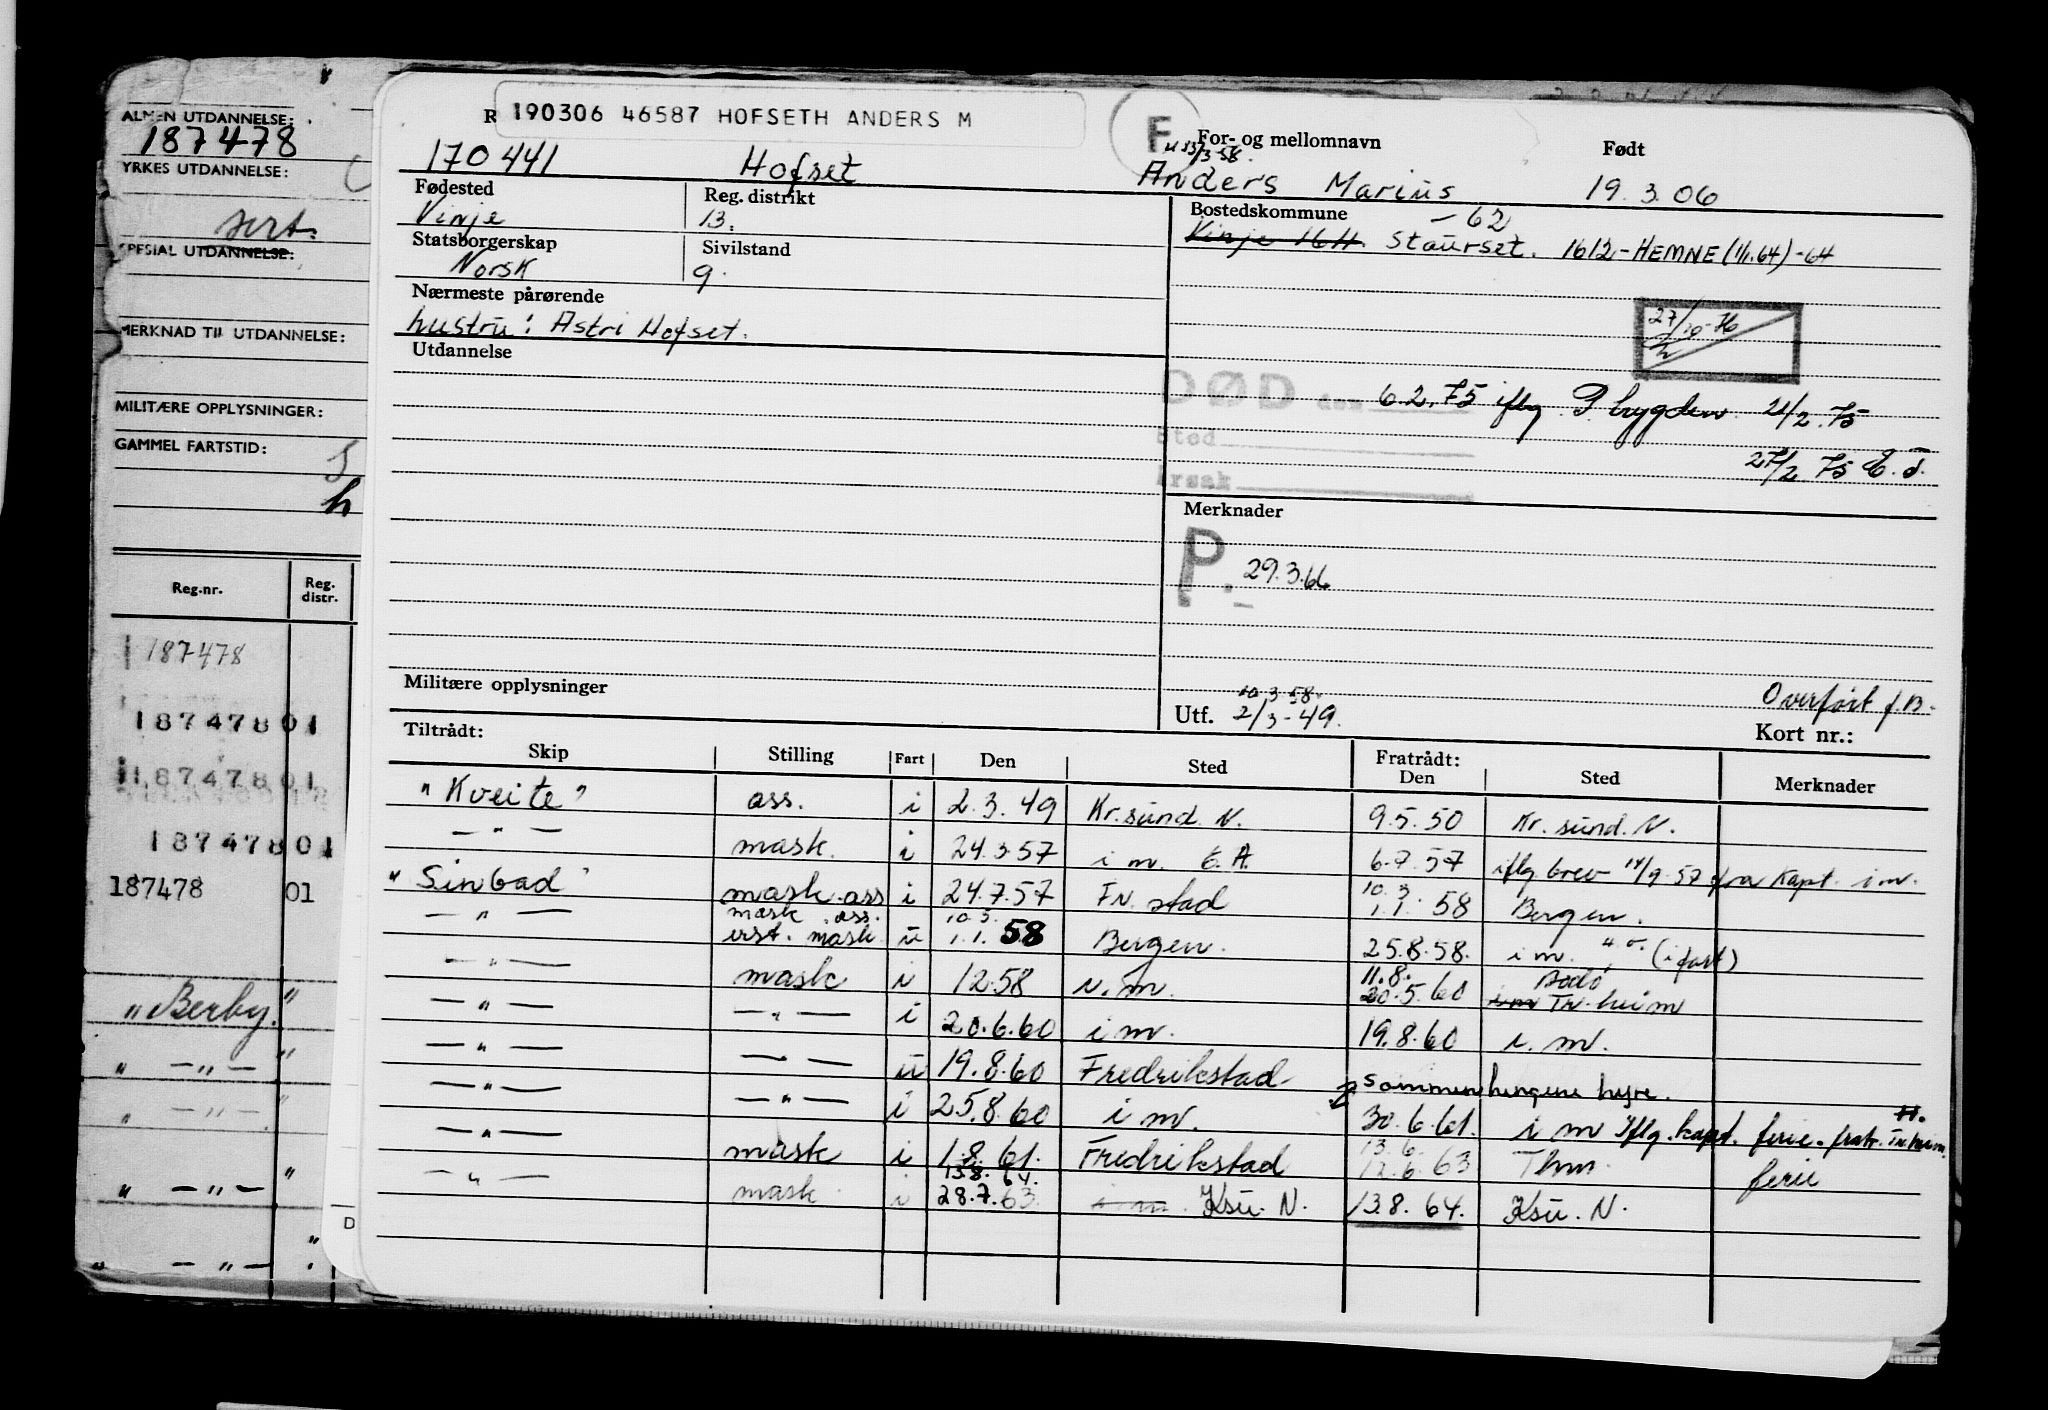 ALMEN UTDANNELSE:
187478
YRKES UTDANNELSE:
sert.
SPESIAL UTDANNELSE:
MERKNAD TIL UTDANNELSE:
MILITÆRE OPPLYSNINGER:
GAMMEL FARTSTID:
h
Reg.nr. Reg. distr.
187478
187478 01
187478 01
187478 01
187478 01
"Berby."
" — " — "
" — " — "
" — " — "
" — " — "
D
R 190306 46587 HOFSETH ANDERS M
F
For- og mellomnavn Født
170441 Hofset Anders Marius 19.3.06
Fødested Reg. distrikt Bostedskommune
Vinje 13. Vinje 16 H. Staurset. — 62 1612-HEMNE (1/1.64) -64
Statsborgerskap Sivilstand
Norsk g.
Nærmeste pårørende
hustru: Astri Hofset.
27/10-76
Utdannelse
DØD den 6.2.75 iflg P. bygden 21/2.75
Sted
27/2 75
Årsak
Merknader
P. 29.3.66
Militære opplysninger
10.3.58.
Utf. 2/3-49.
Overført f.B.
Kort nr.:
Tiltrådt: Fratrådt:
Skip Stilling Fart Den Sted Den Sted Merknader
"Kveite" ass. i 2.3.49 Kr.sund. N. 9.5.50 Kr.sund. N.
— " — mask. i 24.3.57 i m. 6.7.57 iflg brev 14/9.57 fra Kapt. i m.
"Sinbad" mask.ass i 24.7.57 Fr.stad 10.3 1.1. 58 Bergen.
— " — mask. ass. erst. mask. u 10.3. 1.1. 58 Bergen. 25.8.58. i m. (i fart)
— " — mask i 12.58 N.m. 11.8. 20.5.60 Bodø im Tr.heim
— " — — " — i 20.6.60 i m. 19.8.60 i. m.
— " — — " — u 19.8.60 Fredrikstad sammenhengene hyre.
— " — — " — i 25.8.60 i m. 30.6.61. i m Iflg. kapt. ferie. fratr. Tr.heim.
— " — mask i 1.8.61. Fredrikstad 13.6. 12.6.63 Thm. ferie
— " — mask i 13.8.64. 28.7.63 i m. Ksu. N. 13.8.64. Ksu. N.